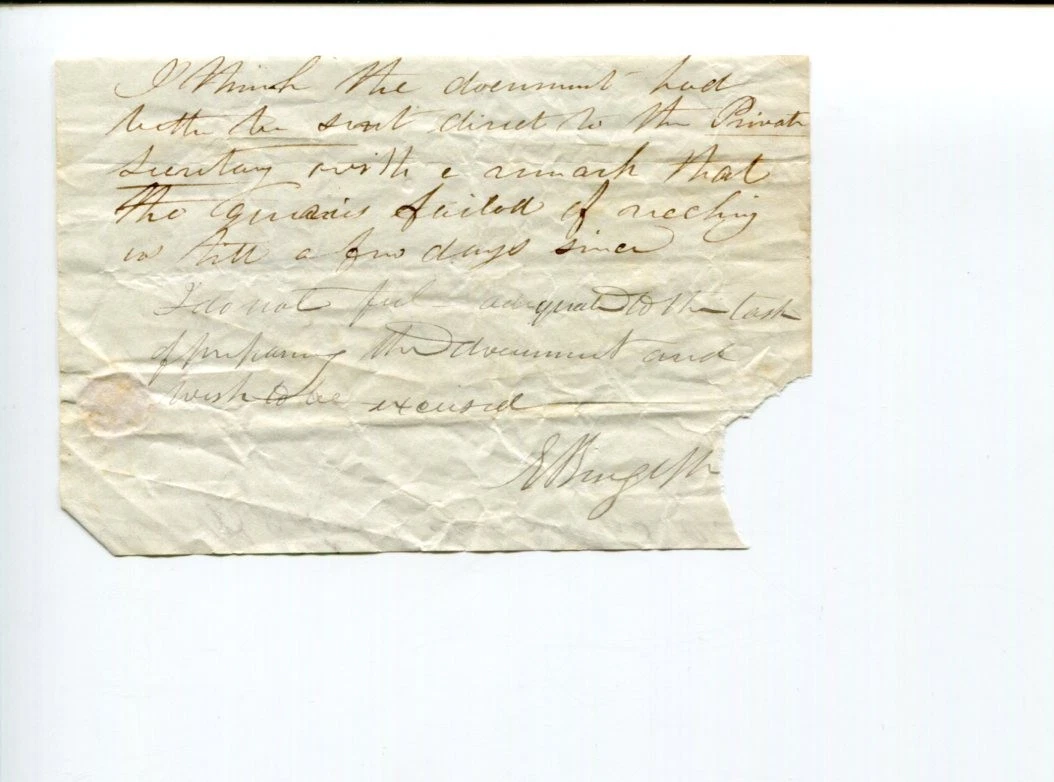 I think the document had
better be sent direct to the Private
Secretary with a remark that
the queries failed of reaching
us till a few days since
I do not feel adequate to the task
of preparing the document and
wish to be excused
E Burgess